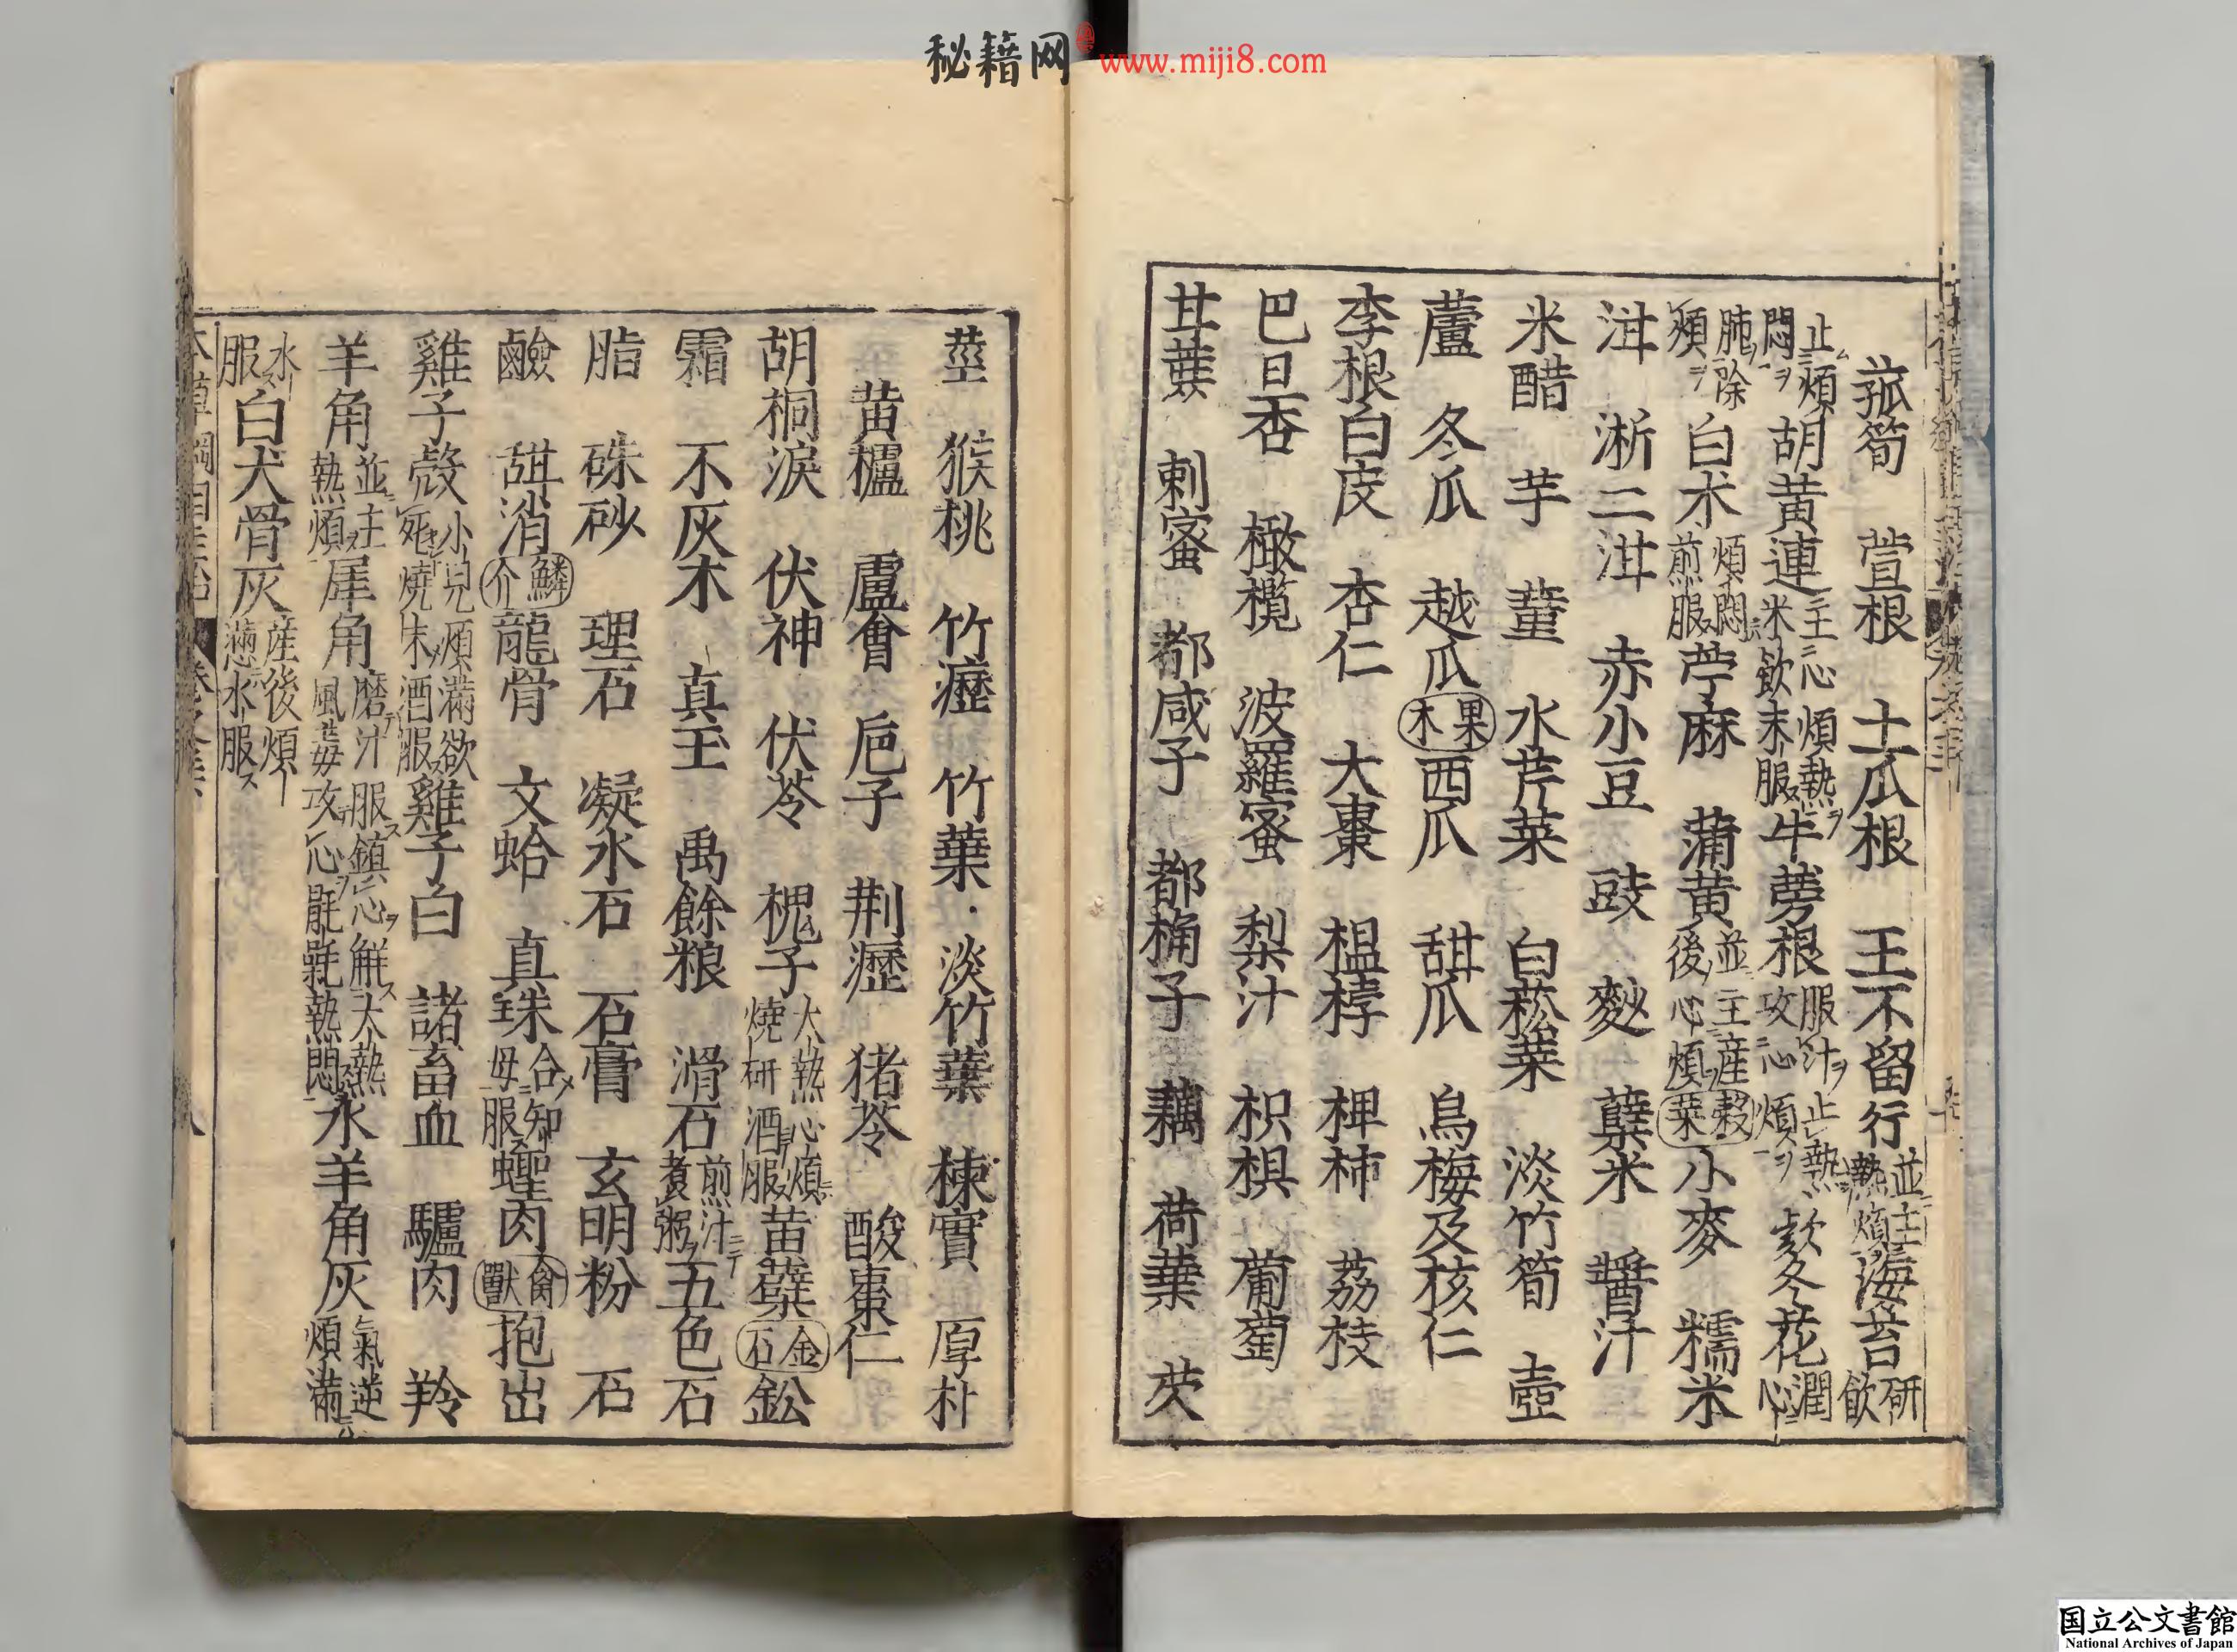 秘籍网 www.miji8.com
菰筍 萱根 土瓜根 王不留行 並主熱煩 海苔 研飲
止煩悶 胡黄連 主心煩熱米飲末服 牛蒡根 服汁止熱攻心煩 款冬花 潤心
肺除煩 白朮 煩悶煎服 苧麻 蒲黄 並主産後心煩 穀菜 小麥 糯米
泔 淅二泔 赤小豆 豉 麨 糵米 醬汁
米醋 芋 蕫 水芹菜 白菘菜 淡竹筍 壺
蘆 冬瓜 越瓜 果木 西瓜 甜瓜 烏梅及核仁
李根白皮 杏仁 大棗 榲桲 椑柿 荔枝
巴旦杏 橄欖 波羅蜜 梨汁 枳椇 葡萄
甘蔗 刺蜜 都咸子 都桷子 藕 荷葉 芡
莖 猴桃 竹瀝 竹葉 淡竹葉 楝實 厚朴
黄櫨 盧會 巵子 荆瀝 猪苓 酸棗仁
胡桐淚 伏神 伏苓 槐子 大熱心煩燒研酒服 黄蘗 金石 鈆
霜 不灰木 真玉 禹餘粮 滑石 煎汁煮粥 五色石
脂 硃砂 理石 凝水石 石膏 玄明粉 石
鹼 甜消 鱗介 龍骨 文蛤 真珠 合知母服 蟶肉 禽獸 抱出
雞子殼 小兒煩滿欲死燒末酒服 雞子白 諸畜血 驢肉 羚
羊角 並主熱煩 犀角 磨汁服鎮心解大熱風毒攻心毷氉熱悶 水羊角灰 氣逆煩滿
水服 白犬骨灰 産後煩懣水服
国立公文書館
National Archives of Japan